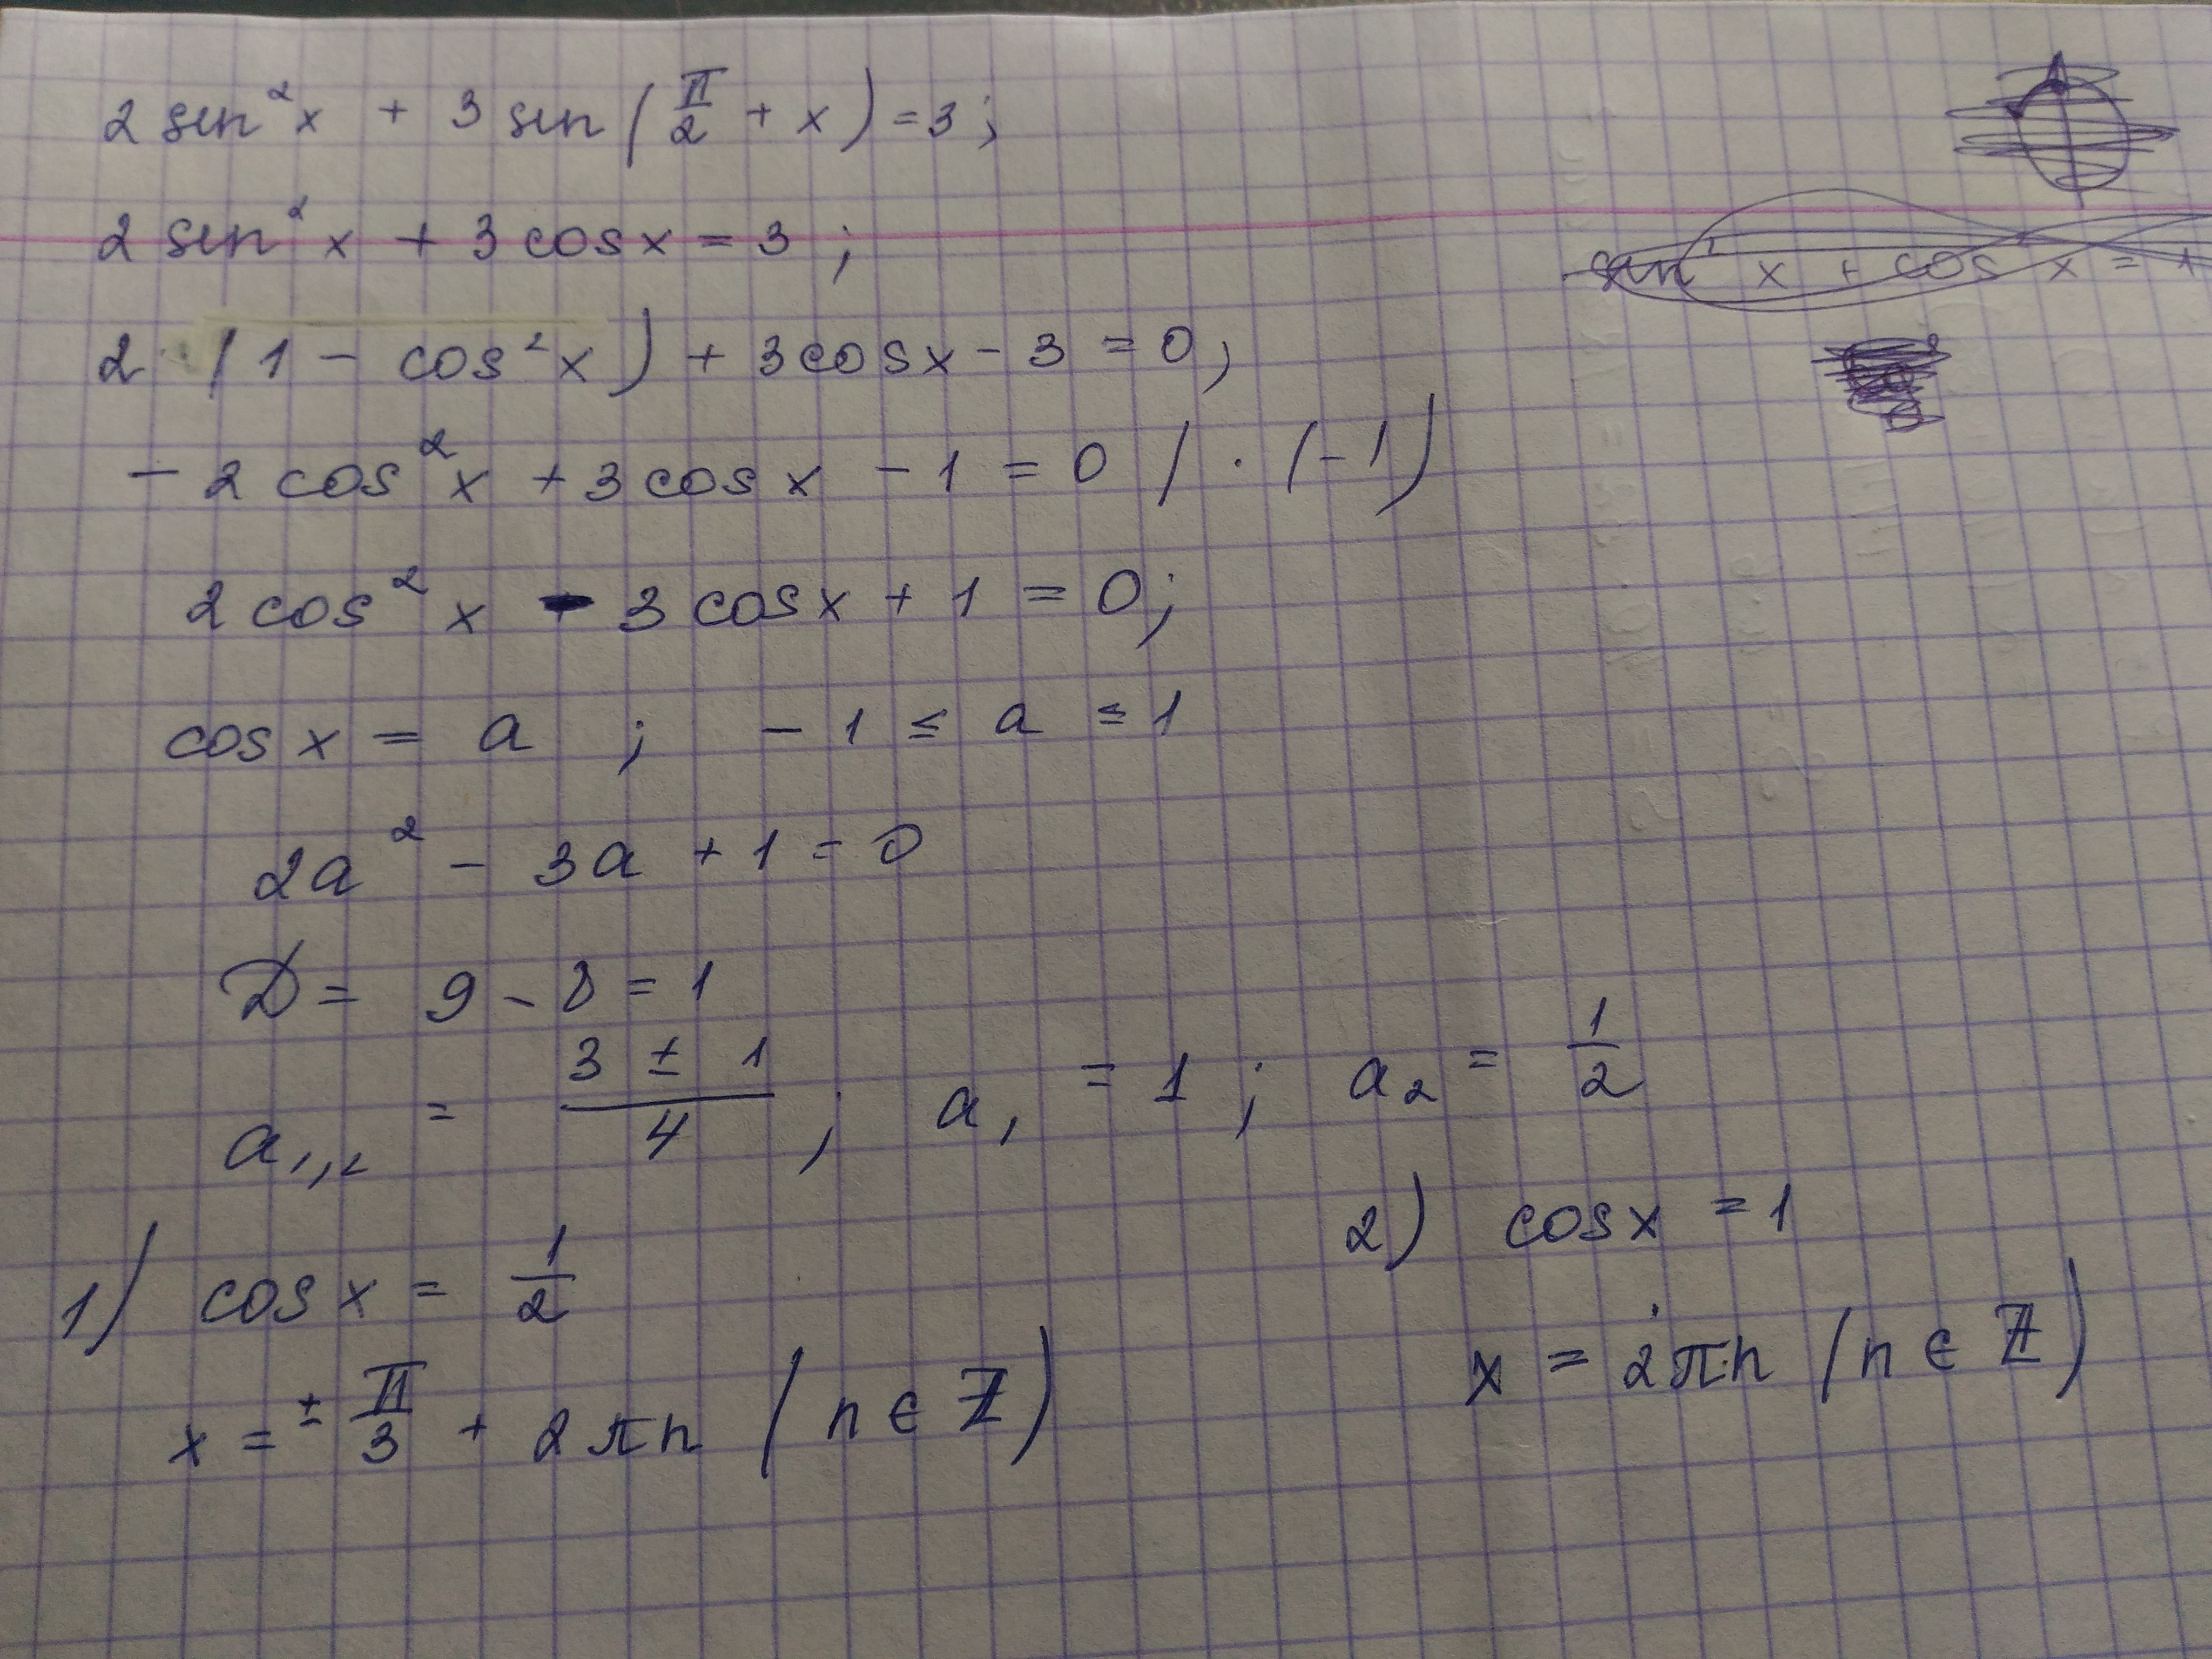 2 sin² x + 3 sin (π/2 + x) = 3;
2 sin² x + 3 cos x = 3;
sin² x + cos² x = 1
2 (1 - cos² x) + 3 cos x - 3 = 0;
- 2 cos² x + 3 cos x - 1 = 0 | · (-1)
2 cos² x - 3 cos x + 1 = 0;
cos x = a ; - 1 ≤ a ≤ 1
2a² - 3a + 1 = 0
D = 9 - 8 = 1
a₁,₂ = (3 ± 1)/4 ; a₁ = 1 ; a₂ = 1/2
1) cos x = 1/2
x = ± π/3 + 2πn (n ∈ Z)
2) cos x = 1
x = 2πn (n ∈ Z)